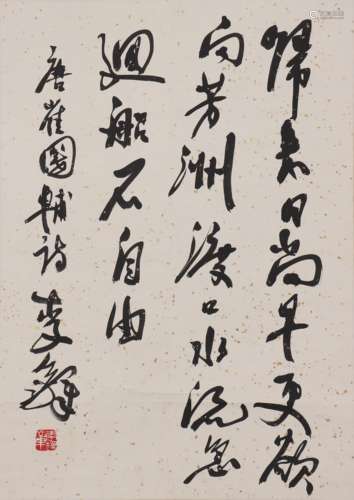 歸来日尚早更欲
向芳洲渡口水流急
迴船不自由
唐崔國輔詩李鐸